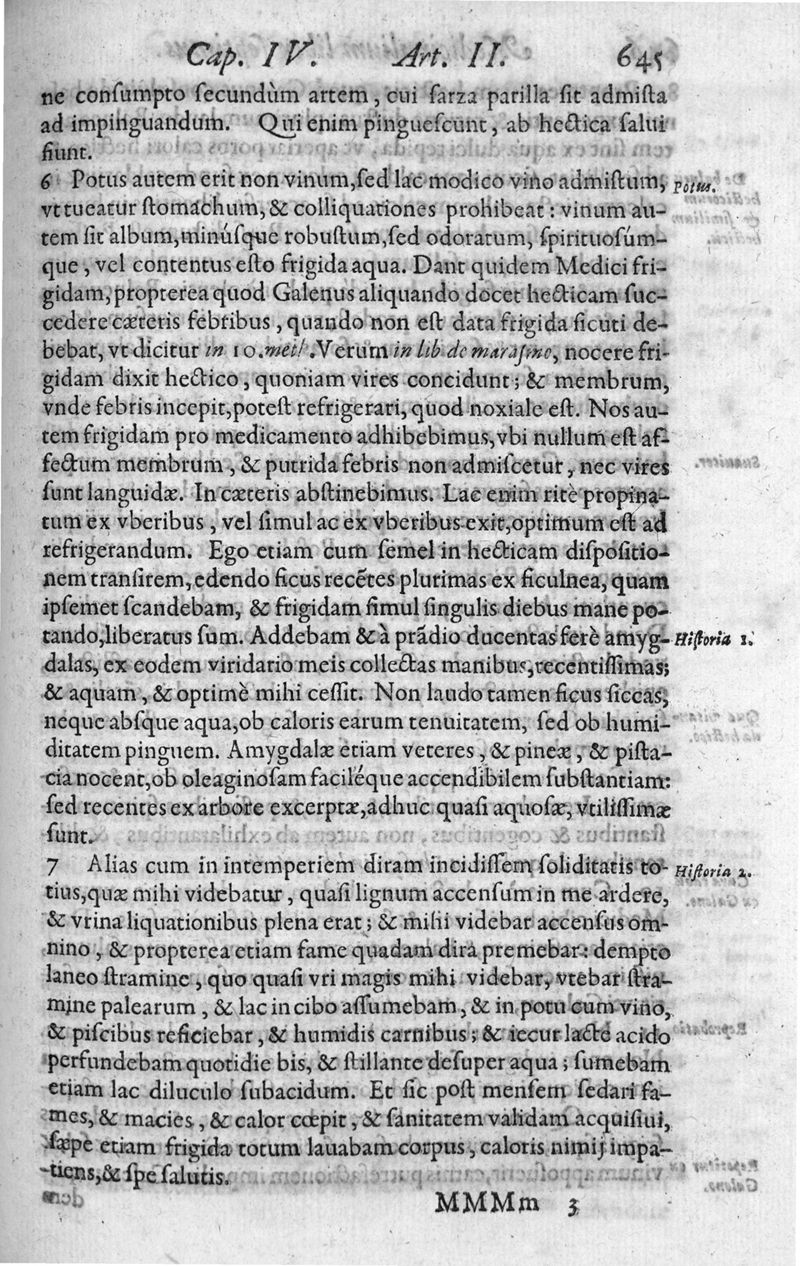 Cap. IV. Art. II. 645
ne conſumpto ſecundùm artem, cui ſarza parilla ſit admiſta
ad impinguandum. Qui enim pingueſcunt, ab hectica ſalui
fiunt.
6 Potus autem erit non vinum, ſed lac modico vino admiſtum, Potus.
vt tueatur ſtomachum, & colliquationes prohibeat: vinum au-
tem ſit album, minúſque robuſtum, ſed odoratum, ſpirituoſúm-
que, vel contentus eſto frigida aqua. Dant quidem Medici fri-
gidam, propterea quod Galenus aliquando docet hecticam ſuc-
cedere cæteris febribus, quando non eſt data frigida ſicuti de-
bebat, vt dicitur in 10. meth. Verum in lib de maraſmo, nocere fri-
gidam dixit hectico, quoniam vires concidunt; & membrum,
vnde febris incepit, poteſt refrigerari, quod noxiale eſt. Nos au-
tem frigidam pro medicamento adhibebimus, vbi nullum eſt af-
fectum membrum, & putrida febris non admiſcetur, nec vires
ſunt languidæ. In cæteris abſtinebimus. Lac enim ritè propina-
tum ex vberibus, vel ſimul ac ex vberibus exit, optimum eſt ad
refrigerandum. Ego etiam cum ſemel in hecticam diſpoſitio-
nem tranſirem, edendo ficus recẽtes plurimas ex ficulnea, quam
ipſemet ſcandebam, & frigidam ſimul ſingulis diebus mane po-
tando, liberatus ſum. Addebam & à prãdio ducentas ferè amyg- Hiſtoria 1.
dalas, ex eodem viridario meis collectas manibus, recentiſſimas;
& aquam, & optimè mihi ceſſit. Non laudo tamen ficus ſiccas,
neque abſque aqua, ob caloris earum tenuitatem, ſed ob humi-
ditatem pinguem. Amygdalæ etiam veteres, & pineæ, & piſta-
cia nocent, ob oleaginoſam faciléque accendibilem ſubſtantiam:
ſed recentes ex arbore excerptæ, adhuc quaſi aquoſæ, vtiliſſimæ
ſunt.
7 Alias cum in intemperiem diram incidiſſem ſoliditatis to- Hiſtoria 2.
tius, quæ mihi videbatur, quaſi lignum accenſum in me ardere,
& vrina liquationibus plena erat; & mihi videbar accenſus om-
nino, & propterea etiam fame quadam dira premebar: dempto
laneo ſtramine, quo quaſi vri magis mihi videbar, vtebar ſtra-
mine palearum, & lac in cibo aſſumebam, & in potu cum vino,
& piſcibus reficiebar, & humidis carnibus; & iecur lacte acido
perfundebam quotidie bis, & ſtillante deſuper aqua; ſumebam
etiam lac diluculo ſubacidum. Et ſic poſt menſem ſedari fa-
mes, & macies, & calor cœpit, & ſanitatem validam acquiſiui,
ſæpe etiam frigida totum lauabam corpus, caloris nimij impa-
tiens, & ſpe ſalutis.
MMMm 3